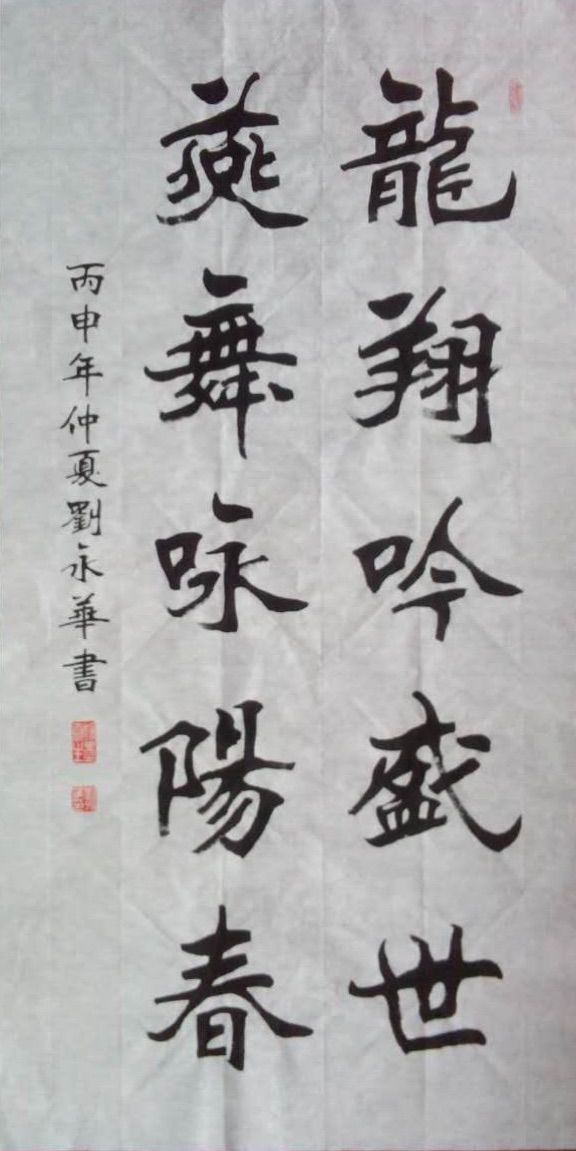 龍翔吟盛世
燕舞咏陽春
丙申年仲夏劉永華書